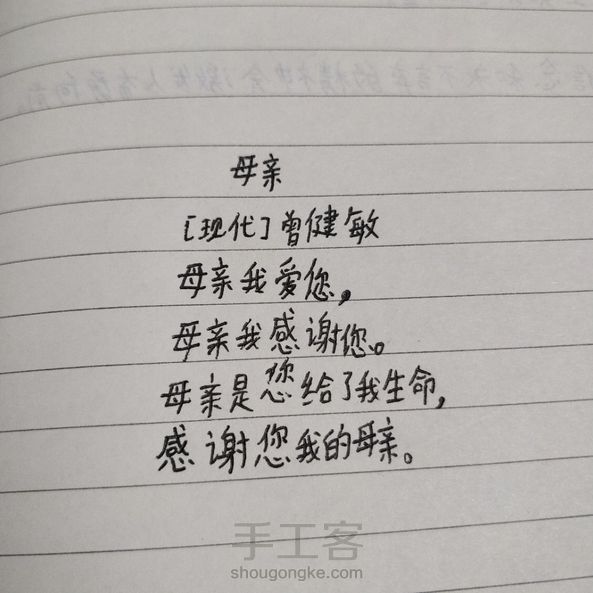 母亲
[现代]曾健敏
母亲我爱您，
母亲我感谢您。
母亲是您给了我生命，
感谢您我的母亲。
手工客
shougongke.com